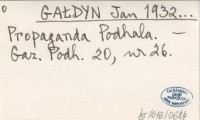 0 GAŁDYN Jan 1932...
Propaganda Podhala. —
Gaz. Podh. 20, nr 26.